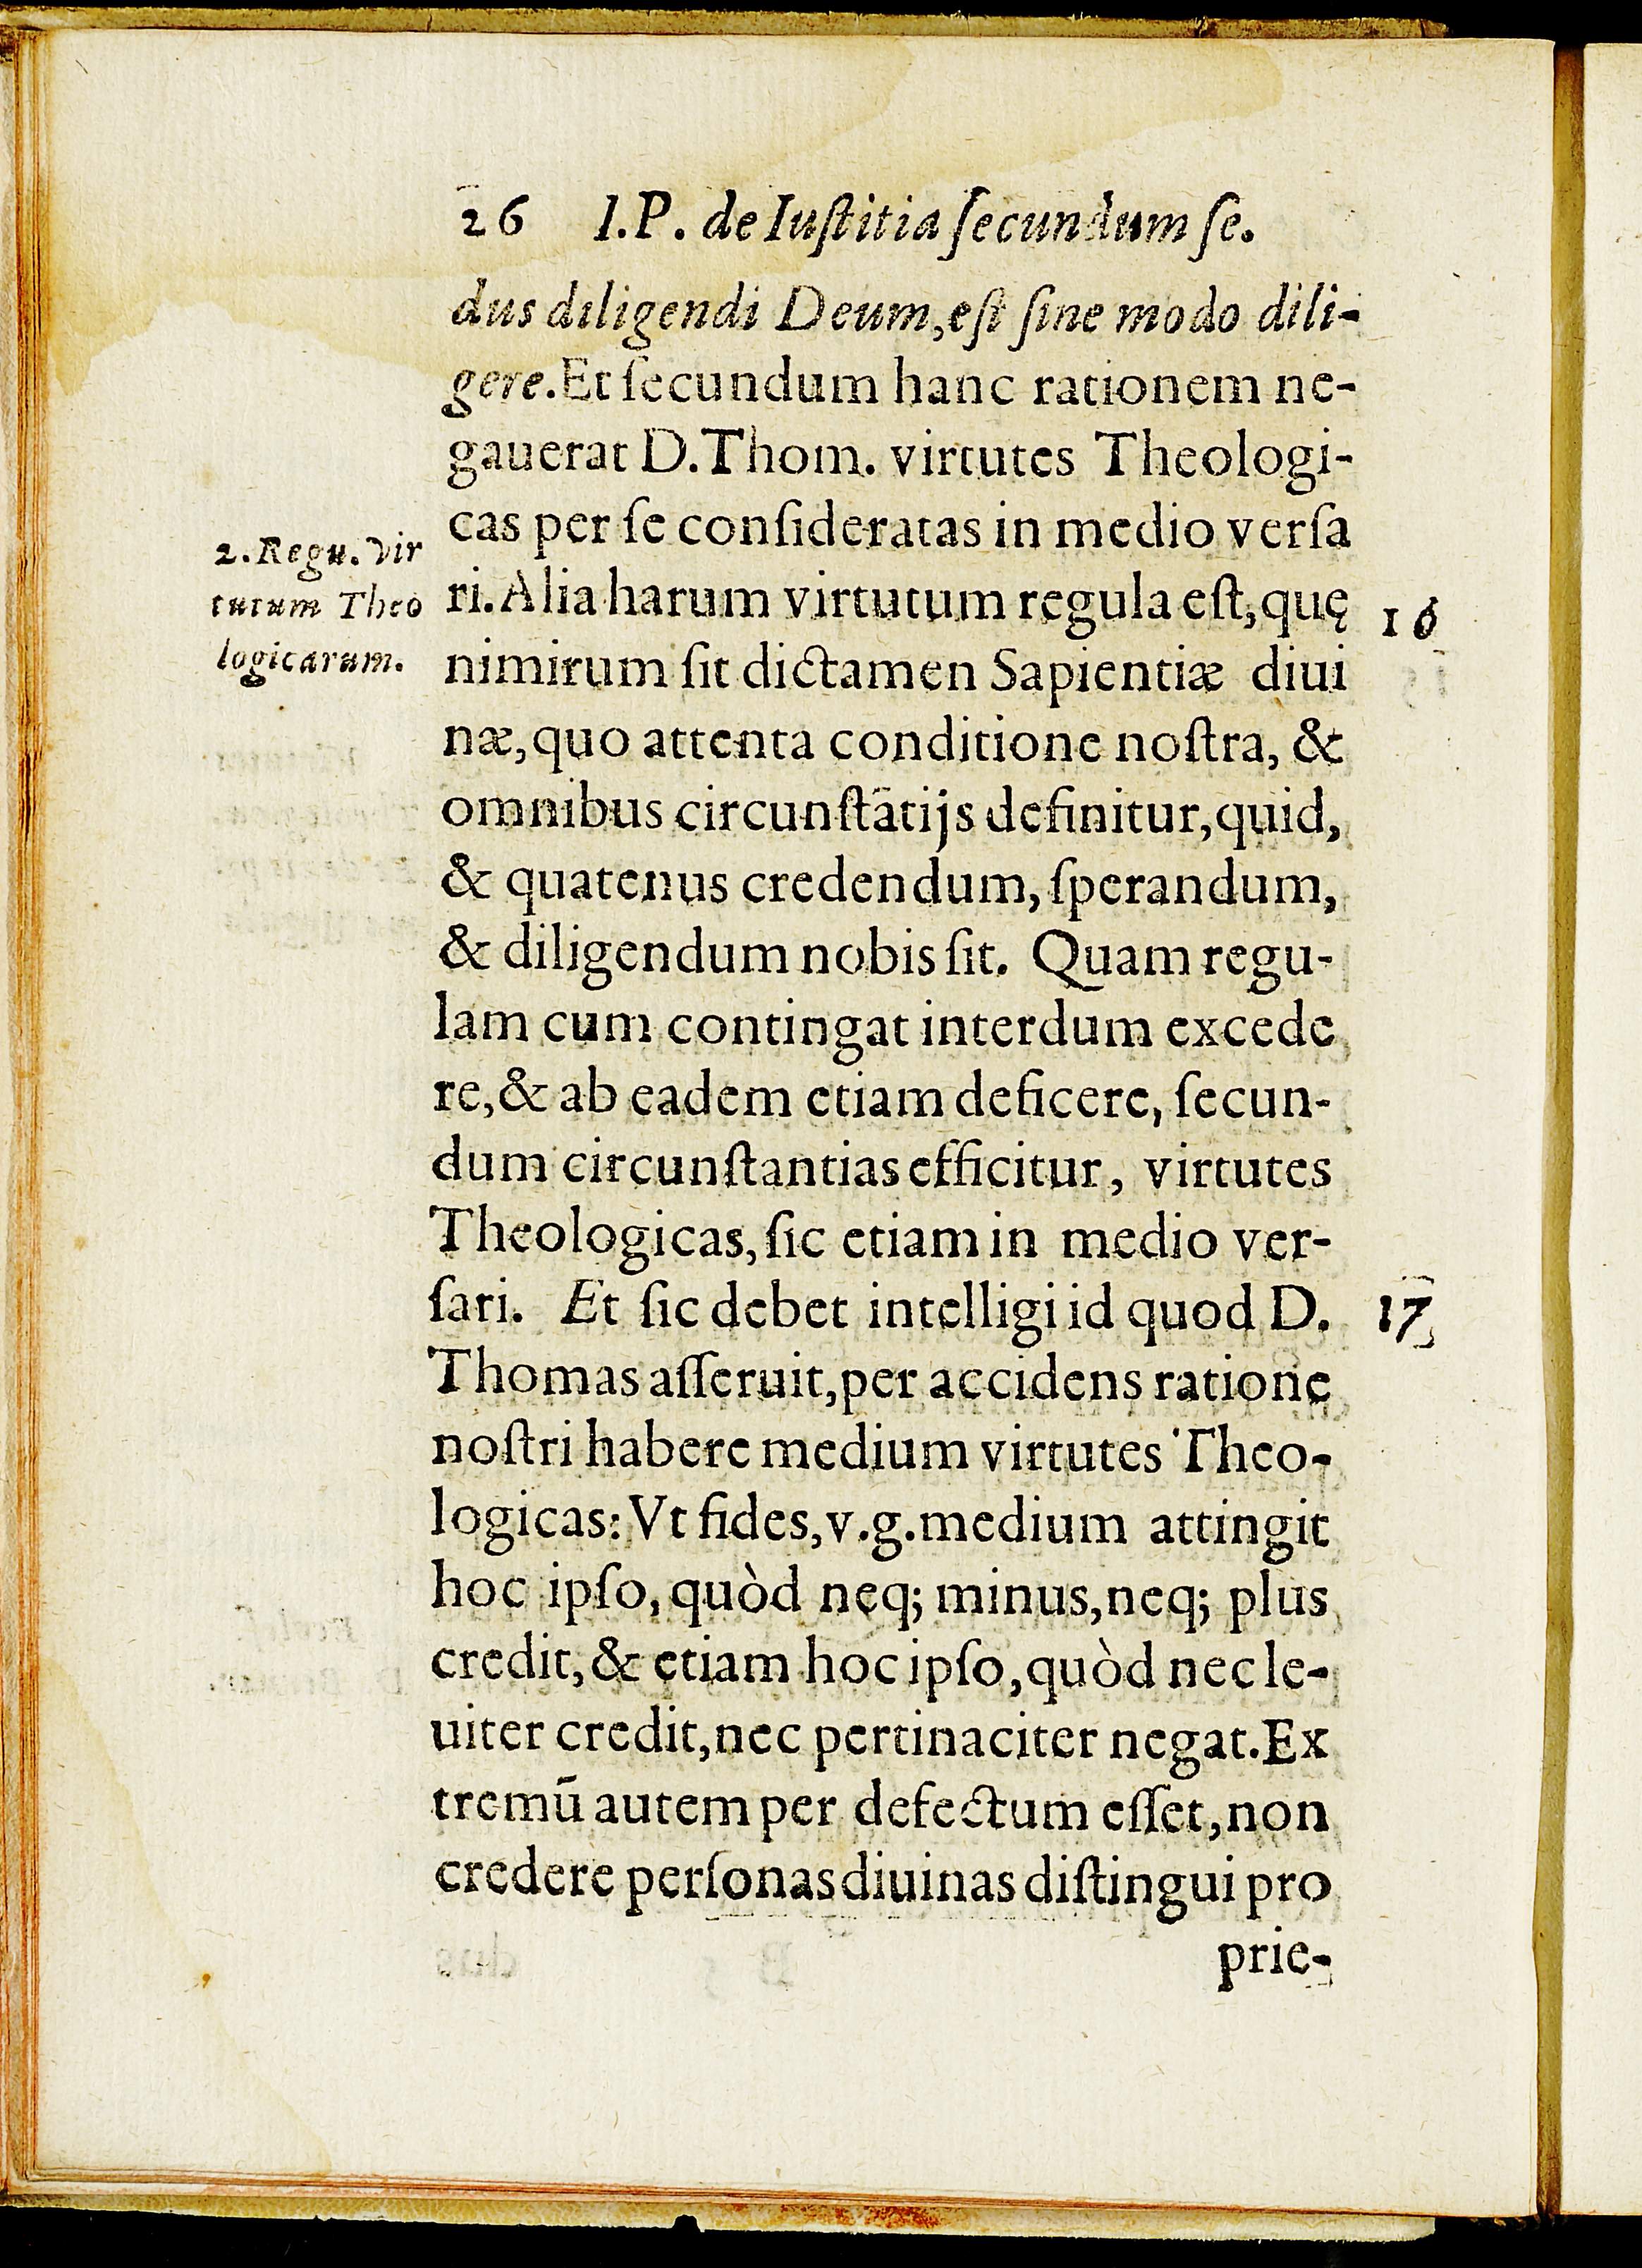 26 I.P. de Iuſtitia ſecundum ſe.
dus diligendi Deum,eſt ſine modo dili-
gere.Et ſecundum hanc rationem ne-
gauerat D.Thom. virtutes Theologi-
cas per ſe conſideratas in medio verſa
ri.Alia harum virtutum regula eſt,quę
nimirum ſit dictamen Sapientiæ diui
næ,quo attenta conditione noſtra, &
omnibus circunſtãtijs definitur,quid,
& quatenus credendum, ſperandum,
& diligendum nobis ſit. Quam regu-
lam cum contingat interdum excede
re,& ab eadem etiam deficere, ſecun-
dum circunſtantias efficitur, virtutes
Theologicas, ſic etiam in medio ver-
ſari. Et ſic debet intelligi id quod D.
Thomas aſſeruit,per accidens ratione
noſtri habere medium virtutes Theo-
logicas: Vt fides,v.g.medium attingit
hoc ipſo, quòd neq; minus,neq; plus
credit,& etiam hoc ipſo,quòd nec le-
uiter credit,nec pertinaciter negat.Ex
tremũ autem per defectum eſſet,non
credere perſonas diuinas diſtingui pro
prie-
2.Regu.vir
tutum Theo
logicarum.
16
17